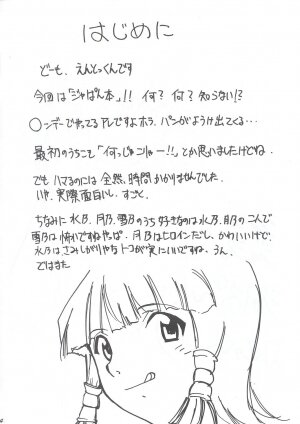 はじめに
どーも、えんとっくんです
今回は「ジャぱん本」!! 何? 何? 知らない!?
○ンデーでやってるアレですよホラ、パンがようけ出てくる…
最初のうちこそ「何っじゃこりゃー!!」とか思いましたけどね。
でもハマるのには全然、時間かかりませんでした。
いや、実際面白いし、すごく。
ちなみに水乃、月乃、雪乃のうち好きなのは水乃、月乃の二人で
雪乃は怖いですねやっぱ。月乃はヒロインだし、かわいいけど、
水乃はさみしがりやなトコが実にいいですね。うん。
ではまた